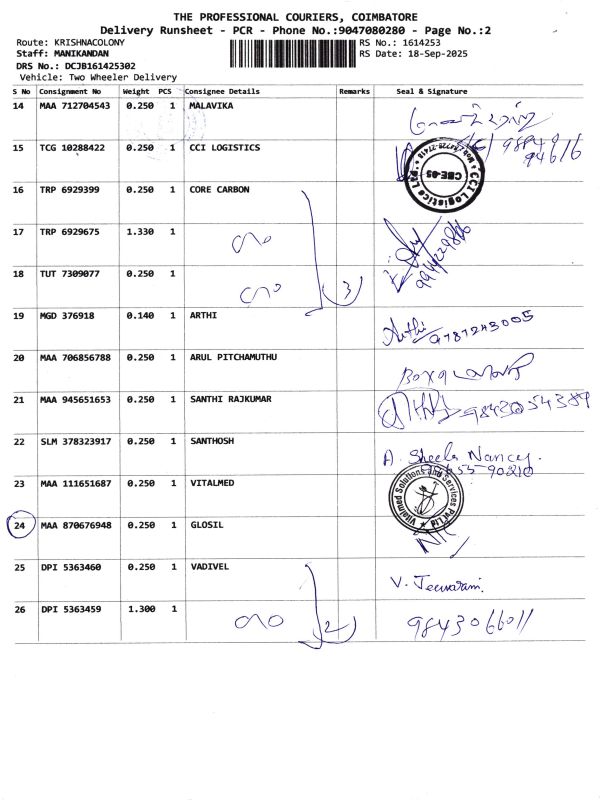 THE PROFESSIONAL COURIERS, COIMBATORE
Delivery Runsheet - PCR - Phone No.:9047080280 - Page No.:2
Route: KRISHNACOLONY RS No.: 1614253
Staff: MANIKANDAN RS Date: 18-Sep-2025
DRS No.: DCJB161425302
Vehicle: Two Wheeler Delivery
S No Consignment No Weight PCS Consignee Details Remarks Seal & Signature
14 MAA 712704543 0.250 1 MALAVIKA
15 TCG 10288422 0.250 1 CCI LOGISTICS
CCI Logistics
CBE-05
16 TRP 6929399 0.250 1 CORE CARBON
17 TRP 6929675 1.330 1
18 TUT 7309077 0.250 1 3
19 MGD 376918 0.140 1 ARTHI Arthi 9787243005
20 MAA 706856788 0.250 1 ARUL PITCHAMUTHU
21 MAA 945651653 0.250 1 SANTHI RAJKUMAR 9843054389
22 SLM 378323917 0.250 1 SANTHOSH A. Sheela Nancy.
90210
23 MAA 111651687 0.250 1 VITALMED
Vitalmed Solutions and Services Pvt Ltd
24 MAA 870676948 0.250 1 GLOSIL
25 DPI 5363460 0.250 1 VADIVEL V. Jeevarani
26 DPI 5363459 1.300 1 2 9843066011